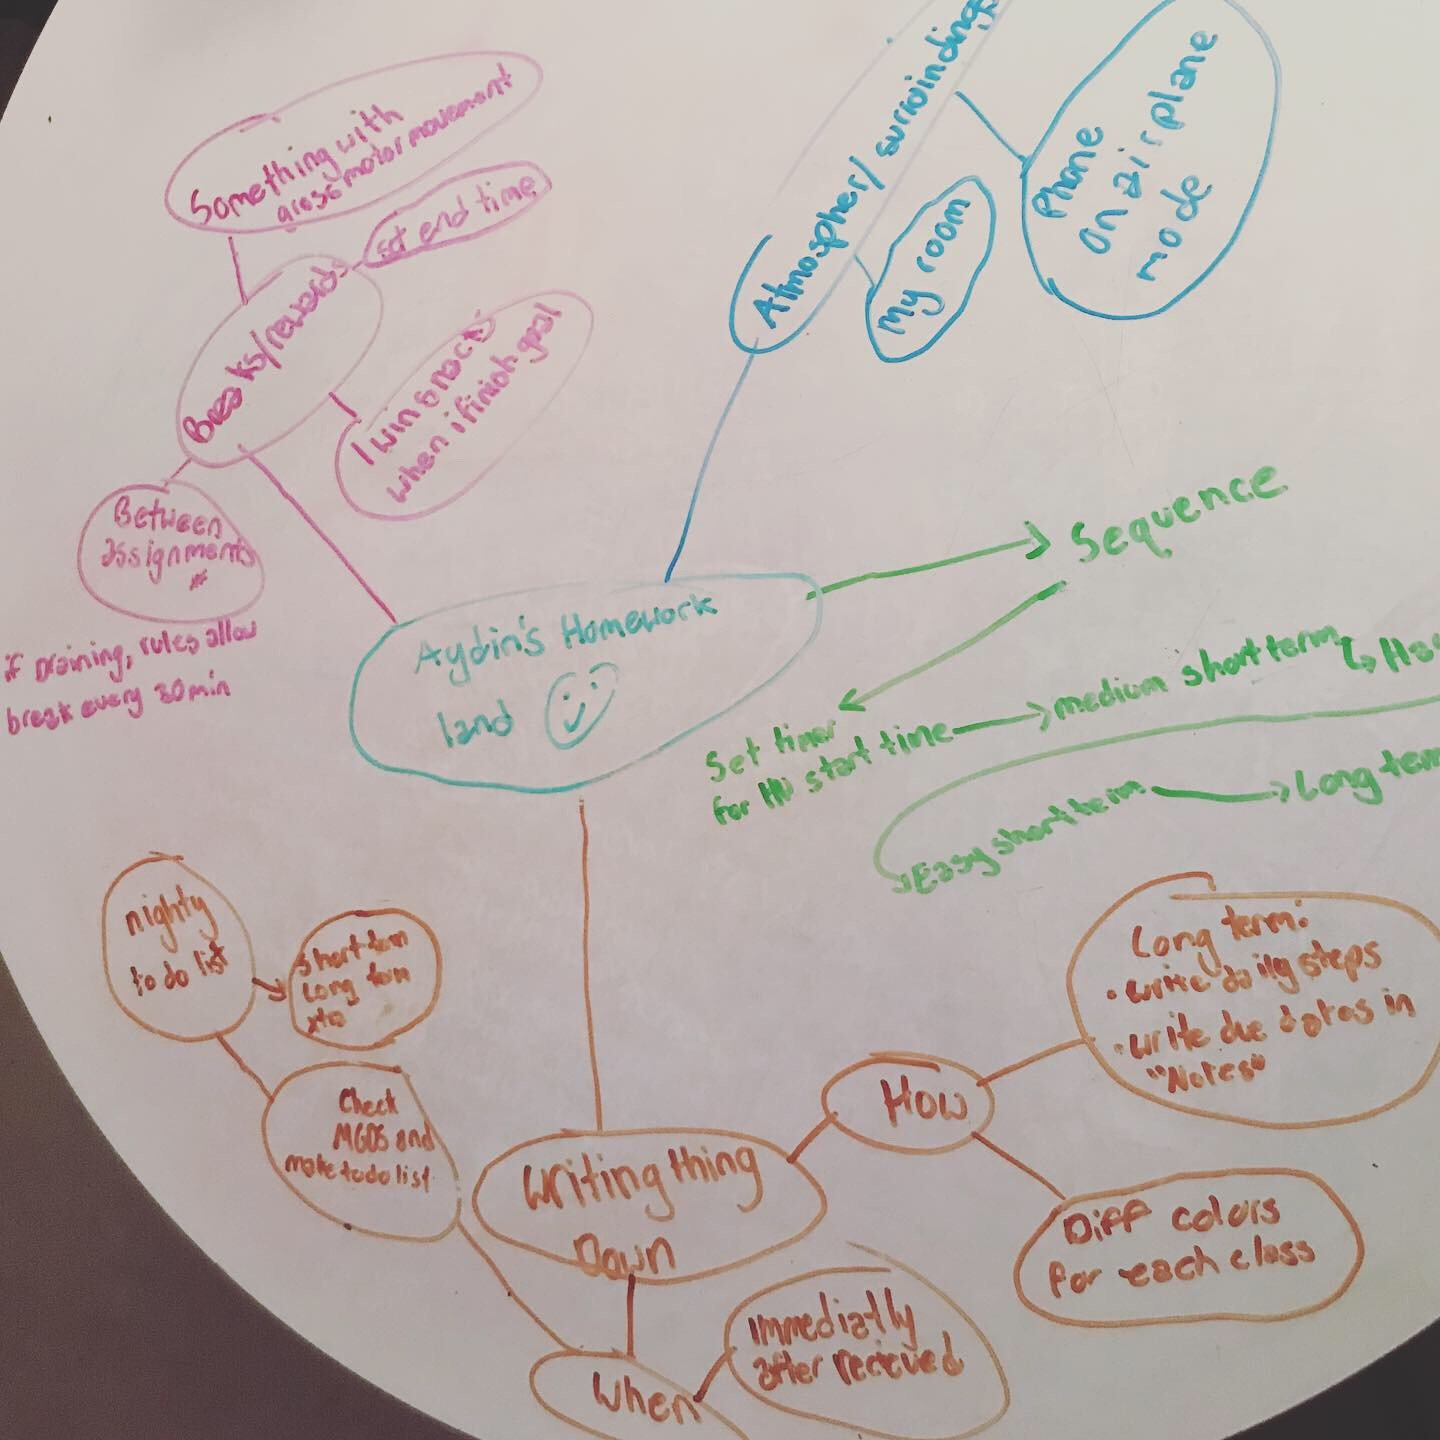 Something with
gross motor movement
set end time
Breaks/rewards
I win snack
when i finish goal
Between
assignments
*
if Draining, rules allow
break every 30 min
Atmospher/ surroundings
My room
Phone
on airplane
mode
Aydin's Homework
land
Sequence
Set timer
for HW start time
medium short term
Easy short term
Long term
nighty
to do list
short term
Long term
xtra
Check
MGDS and
make to do list
Writing thing
Down
How
Long term:
• write daily steps
• write due dates in
"Notes"
Diff colors
for each class
When
Immediatly
after recieved